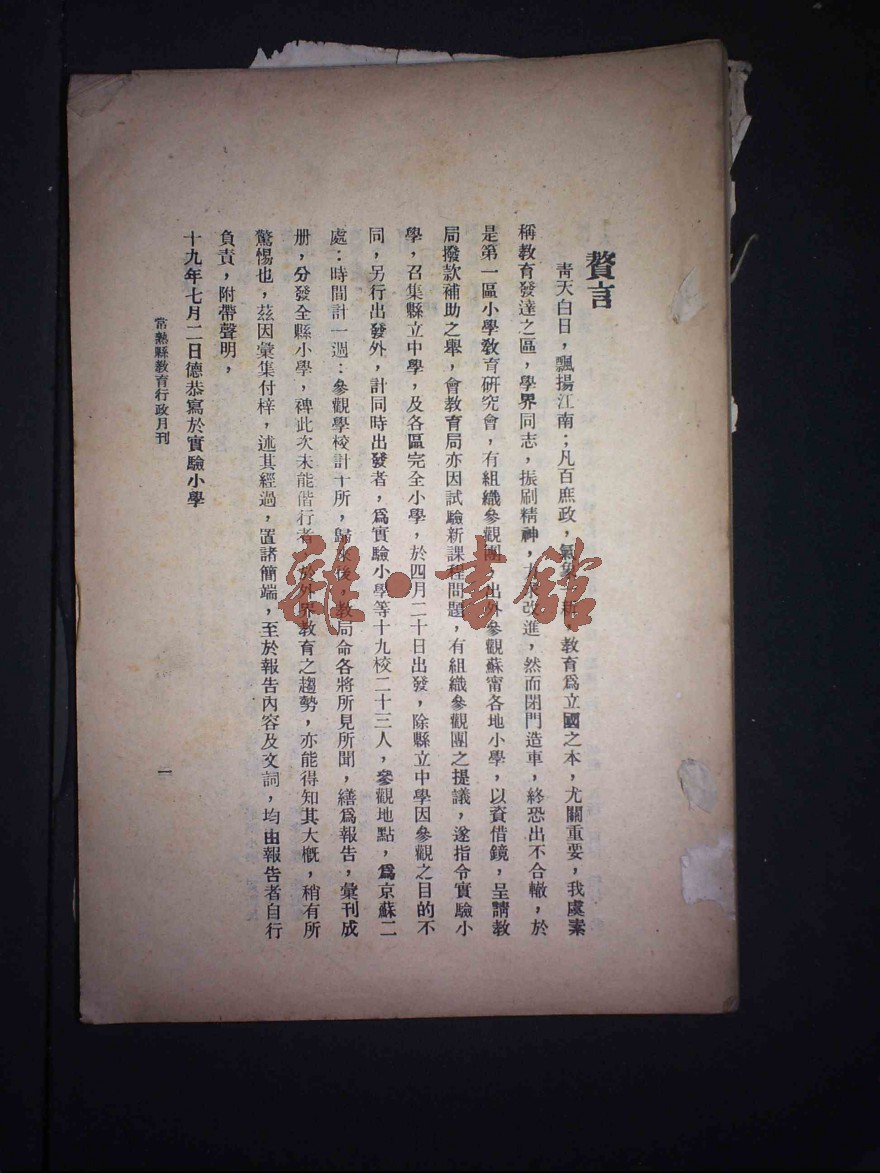 贅言
青天白日，飄揚江南；凡百庶政，氣象新，教育爲立國之本，尤關重要，我虞素
稱教育發達之區，學界同志，振刷精神，力求改進，然而閉門造車，終恐出不合轍，於
是第一區小學教育研究會，有組織參觀團，出外參觀蘇甯各地小學，以資借鏡，呈請教
局撥款補助之舉，會教育局亦因試驗新課程問題，有組織參觀團之提議，遂指令實驗小
學，召集縣立中學，及各區完全小學，於四月二十日出發，除縣立中學因參觀之目的不
同，另行出發外，計同時出發者，爲實驗小學等十九校二十三人，參觀地點，爲京蘇二
處：時間計一週：參觀學校計十所，歸來後，教局命各將所見所聞，繕爲報告，彙刊成
册，分發全縣小學，碑此次未能偕行者，於外界教育之趨勢，亦能得知其大概，稍有所
驚惕也，茲因彙集付梓，述其經過，置諸簡端，至於報告內容及文詞，均由報告者自行
負責，附帶聲明，
十九年七月二日德恭寫於實驗小學
常熟縣教育行政月刊
一
雜·書館